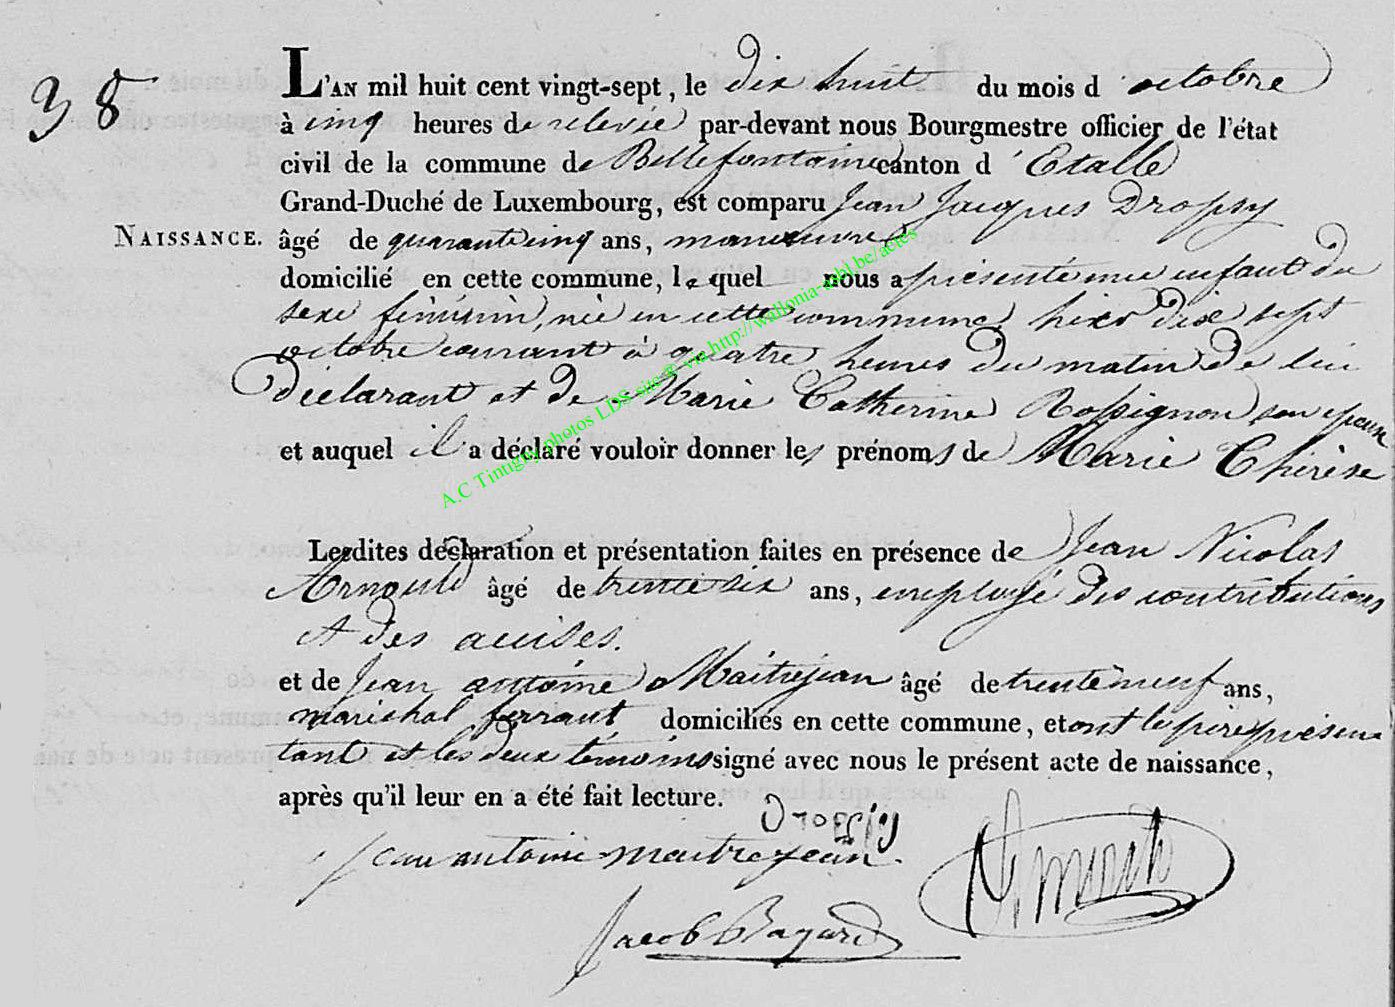 38
L'AN mil huit cent vingt-sept, le dix huit du mois d'octobre
à cinq heures de relevée par-devant nous Bourgmestre officier de l'état
civil de la commune de Bellefontaine canton d'Etalle
Grand-Duché de Luxembourg, est comparu Jean Jacques Dropsy
NAISSANCE. âgé de quarante cinq ans, manœuvre
domicilié en cette commune, lequel nous a présenté une enfant du
sexe féminin, née en cette commune hier dix sept
octobre courant à quatre heures du matin de lui
déclarant et de Marie Catherine Rossignon son epouse
et auquel il a déclaré vouloir donner les prénoms de Marie Thérèse
Lesdites déclaration et présentation faites en présence de Jean Nicolas
Arnould âgé de trente six ans, employé des contributions
et des accises.
et de Jean antoine Maitrejean âgé de trente neuf ans,
maréchal ferrant domiciliés en cette commune, et ont le père présen
tant et les deux témoins signé avec nous le présent acte de naissance,
après qu'il leur en a été fait lecture.
Dropsy
jean antoine maitrejean
Jacob Bayard
A.C Tintigny photos LDS site @ via http://wallonia-tabl.be/actes